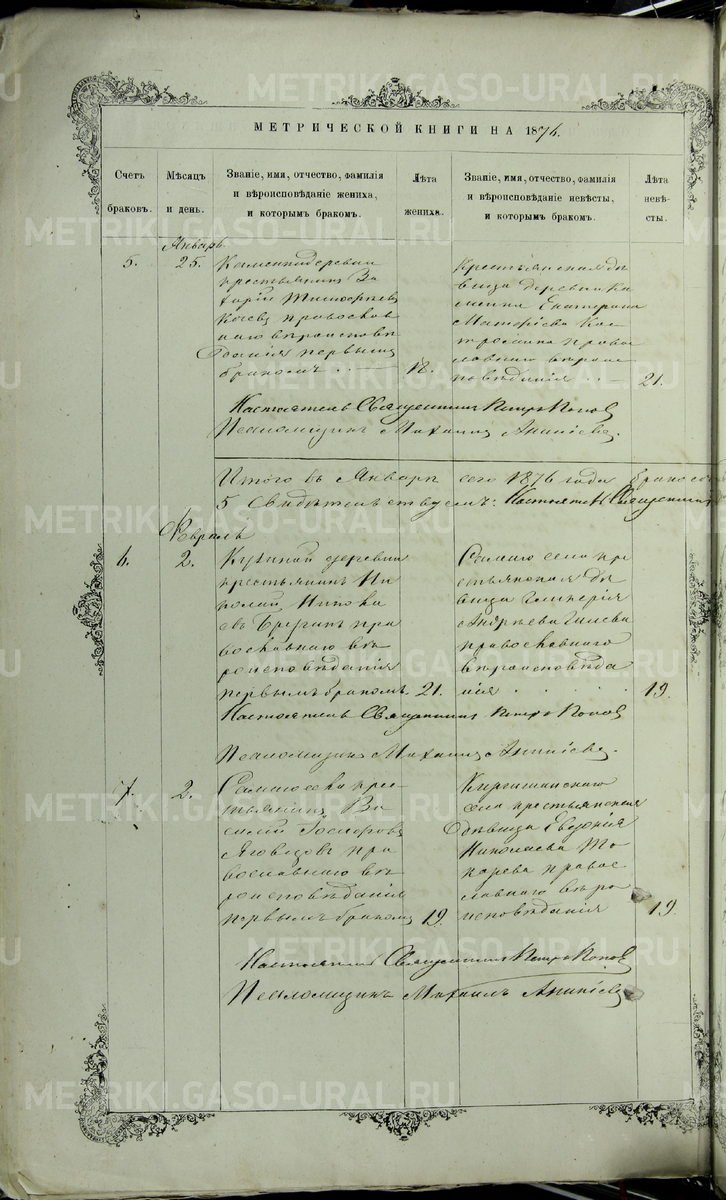 МЕТРИЧЕСКОЙ КНИГИ НА 1876.
Счетъ браковъ.
Мѣсяцъ и день.
Званіе, имя, отчество, фамилія
и вѣроисповѣданіе жениха,
и которымъ бракомъ.
Лѣта жениха.
Званіе, имя, отчество, фамилія
и вѣроисповѣданіе невѣсты,
и которымъ бракомъ.
Лѣта невѣ-
сты.
Январь
5.
25.
крестьянинъ За
харій
православ
наго вѣроисповѣ
данія первымъ
бракомъ
18.
Крестьянская дѣ
вица деревни Ка
менки Екатерина
Матвѣева Кос
тромина право
славнаго вѣроис
повѣданія
21.
Настоятель Священникъ Петръ Попов
Псаломщикъ Михаилъ Ананіевъ.
Итого въ Январѣ сего 1876 года браковъ
5 Свидѣтельствуемъ: Настоятель Священникъ
Февраль
6.
2.
деревни
крестьянинъ Ни
колай
православнаго вѣ
роисповѣданія
первымъ бракомъ.
21.
Самаго села кре
стьянская дѣ
вица Гликерія
Андреева Гилева
православнаго
вѣроисповѣда
нія
19.
Настоятель Священникъ Петръ Попов
Псаломщикъ Михаилъ Ананіевъ.
7.
2.
Самаго села кре
стьянинъ Ва
силій
пра
вославнаго вѣ
роисповѣданія
первымъ бракомъ
19.
Киргишанскаго
села крестьянская
дѣвица Евдокія
Николаева То
карева право
славнаго вѣро
исповѣданія
19.
Настоятель Священникъ Петръ Попов
Псаломщикъ Михаилъ Ананіевъ
METRIKI.GASO-URAL.RU